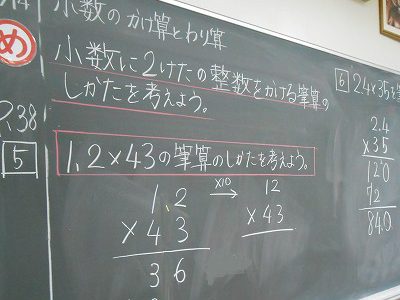 小数のかけ算とわり算
め
小数に2けたの整数をかける筆算の
しかたを考えよう。
P.38
5
1.2×43の筆算のしかたを考えよう。
1.2
×43
36
×10
12
×43
6 2.4×35を筆
2.4
×35
120
72
84.0